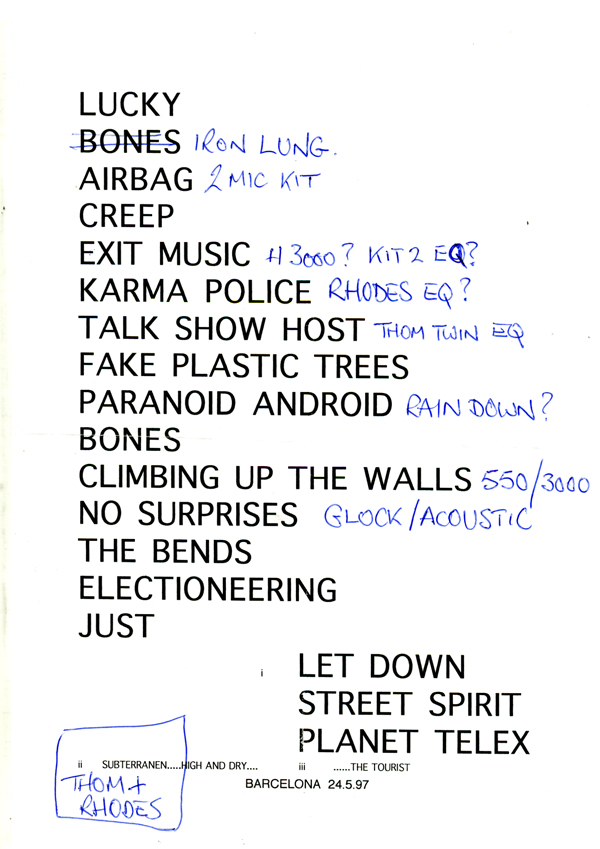 LUCKY
BONES IRON LUNG.
AIRBAG 2 MIC KIT
CREEP
EXIT MUSIC H3000? KIT 2 EQ?
KARMA POLICE RHODES EQ?
TALK SHOW HOST THOM TWIN EQ
FAKE PLASTIC TREES
PARANOID ANDROID RAIN DOWN?
BONES
CLIMBING UP THE WALLS 550/3000
NO SURPRISES GLOCK/ACOUSTIC
THE BENDS
ELECTIONEERING
JUST
i LET DOWN
STREET SPIRIT
PLANET TELEX
ii SUBTERRANEN.....HIGH AND DRY.... iii ......THE TOURIST
THOM +
RHODES
BARCELONA 24.5.97